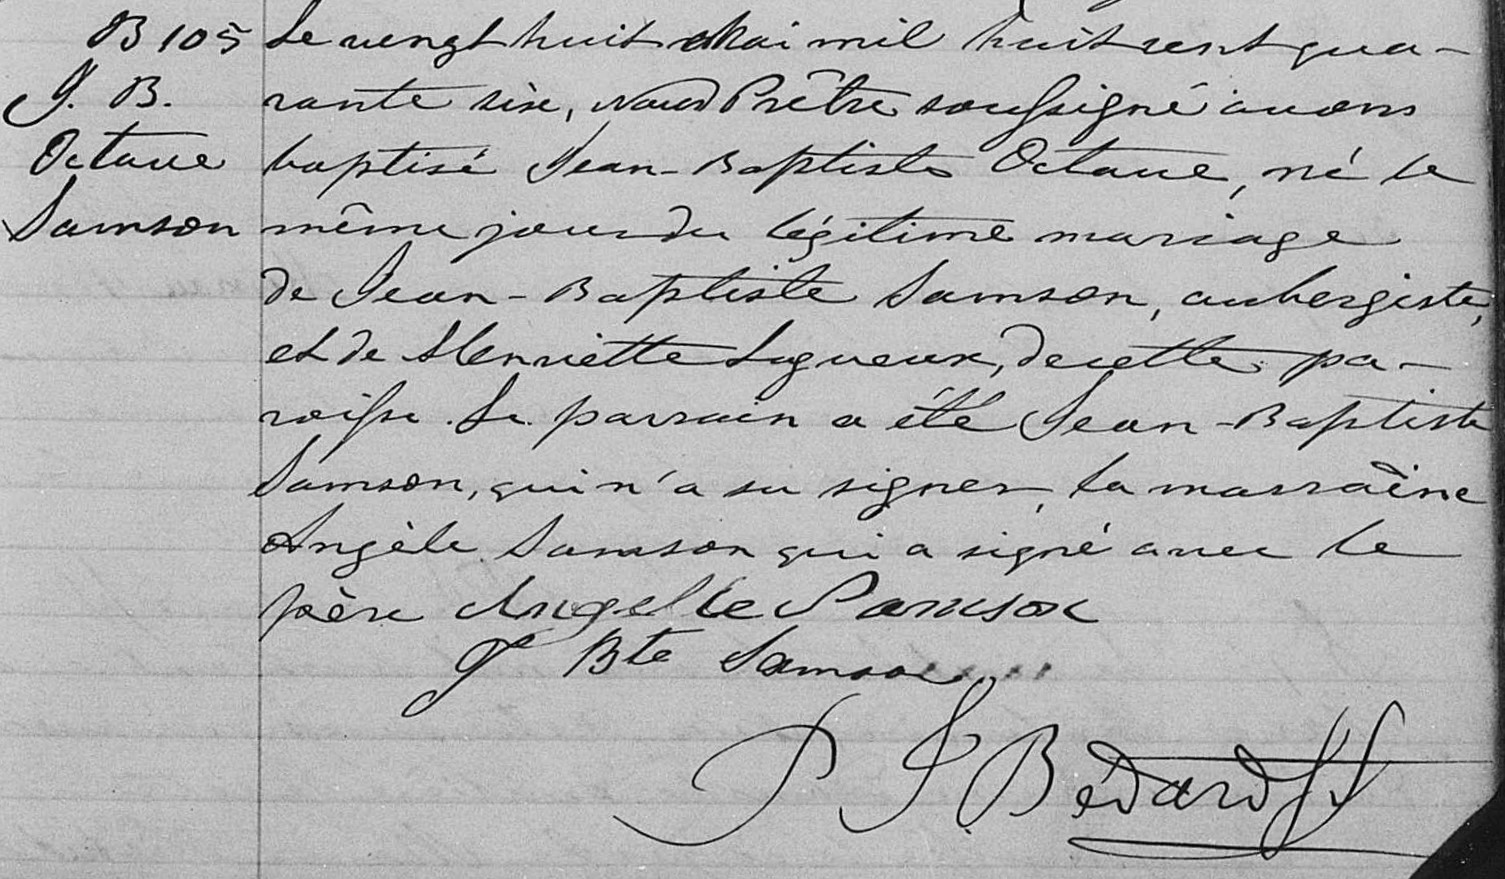 B 105
J. B.
Octave
Samson
Le vengt huit Mai mil huit cent qua-
rante six, Nous Prêtre soussigné avons
baptisé Jean-Baptiste Octave, né le
même jour du légitime mariage
de Jean-Baptiste Samson, aubergiste,
et de Henriette Lagueux, de cette pa-
roisse. Le parrain a été Jean-Baptiste
Samson, qui n'a su signer, la marraine
Angèle Samson qui a signé avec le
père Angelle Samson
Jn Bte Samson
P J Bédard